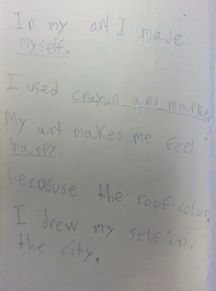 In my art I made
myself.
I used crayon and marker
My art makes me feel
happy.
becasuse the roof.color.
I drew my self in.
the city.